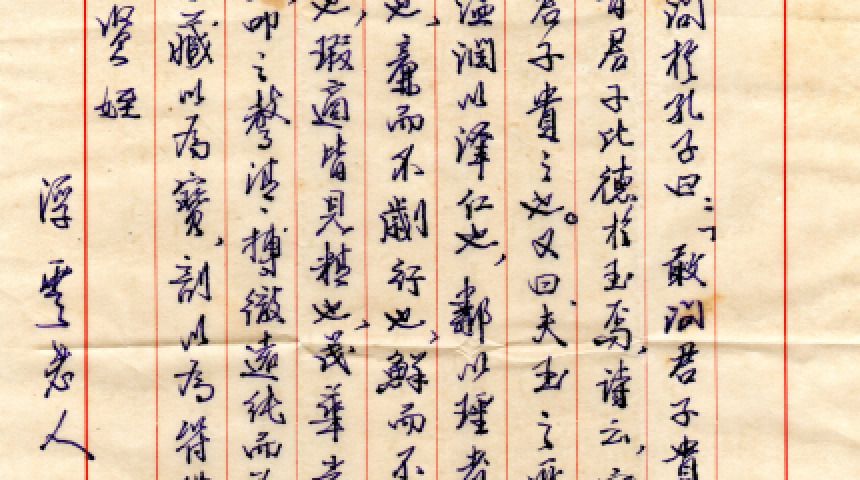 问於孔子曰：「敢问君子貴
君子比德於玉焉，诗云，
君子貴之也。又曰夫玉之所
温潤以泽仁也，鄰以理者
也，廉而不劌行也，鮮而不
也，瑕適皆見精也，茂華光
叩之，其音清搏徹遠純而
藏以為寶，剖以為符
贤姪
浮雲老人